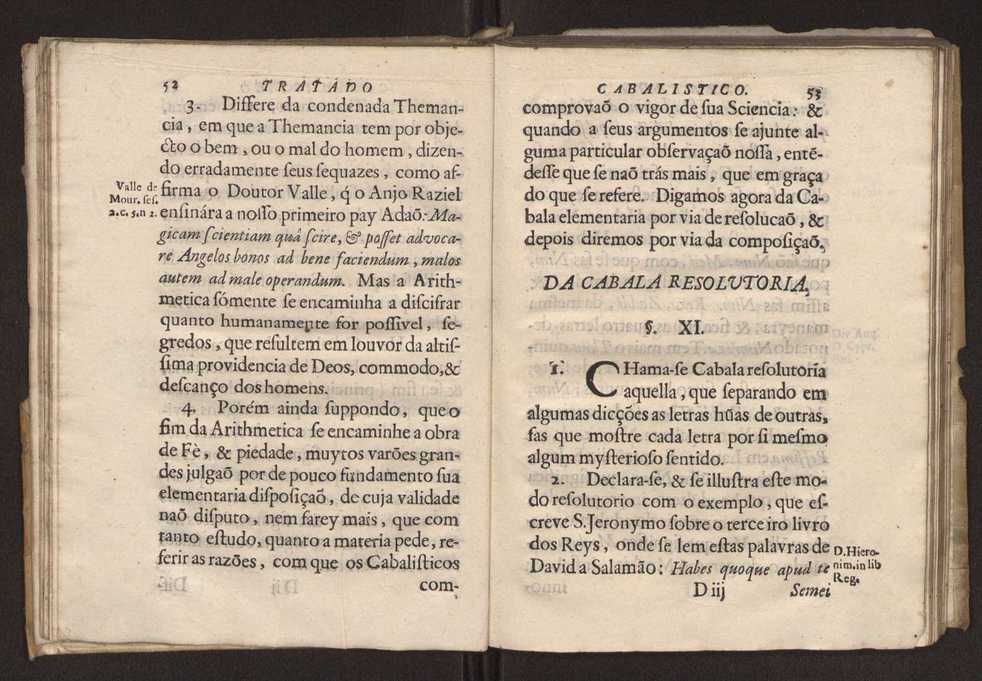 52 TRATADO
3. Differe da condenada Theman-
cia, em que a Themancia tem por obje-
cto o bem, ou o mal do homem, dizen-
do erradamente seus sequazes, como af-
Valle de
Mour. ses.
2.c. 5.n 2.
firma o Doutor Valle, q̃ o Anjo Raziel
ensinára a nosso primeiro pay Adaõ: Ma-
gicam scientiam quâ scire, & posset advoca-
re Angelos bonos ad bene faciendum, malos
autem ad male operandum. Mas a Arith-
metica sómente se encaminha a discifrar
quanto humanamente for possivel, se-
gredos, que resultem em louvor da altis-
sima providencia de Deos, commodo, &
descanço dos homens.
4. Porém ainda suppondo, que o
fim da Arithmetica se encaminhe a obra
de Fè, & piedade, muytos varões gran-
des julgaõ por de pouco fundamento sua
elementaria disposiçaõ, de cuja validade
naõ disputo, nem farey mais, que com
tanto estudo, quanto a materia pede, re-
ferir as razões, com que os Cabalisticos
com-
CABALISTICO. 53
comprovaõ o vigor de sua Sciencia: &
quando a seus argumentos se ajunte al-
guma particular observaçaõ nossa, entẽ-
desse que se naõ trás mais, que em graça
do que se refere. Digamos agora da Ca-
bala elementaria por via de resolucaõ, &
depois diremos por via da composiçaõ.
DA CABALA RESOLVTORIA,
§. XI.
1. CHama-se Cabala resolutoria
aquella, que separando em
algumas dicções as letras hũas de outras,
fas que mostre cada letra por si mesmo
algum mysterioso sentido.
2. Declara-se, & se illustra este mo-
do resolutorio com o exemplo, que es-
creve S. Jeronymo sobre o terceiro livro
dos Reys, onde se lem estas palavras de
David a Salamão: Habes quoque apud te
D. Hiero-
nim. in lib
Reg.
D iij Semei